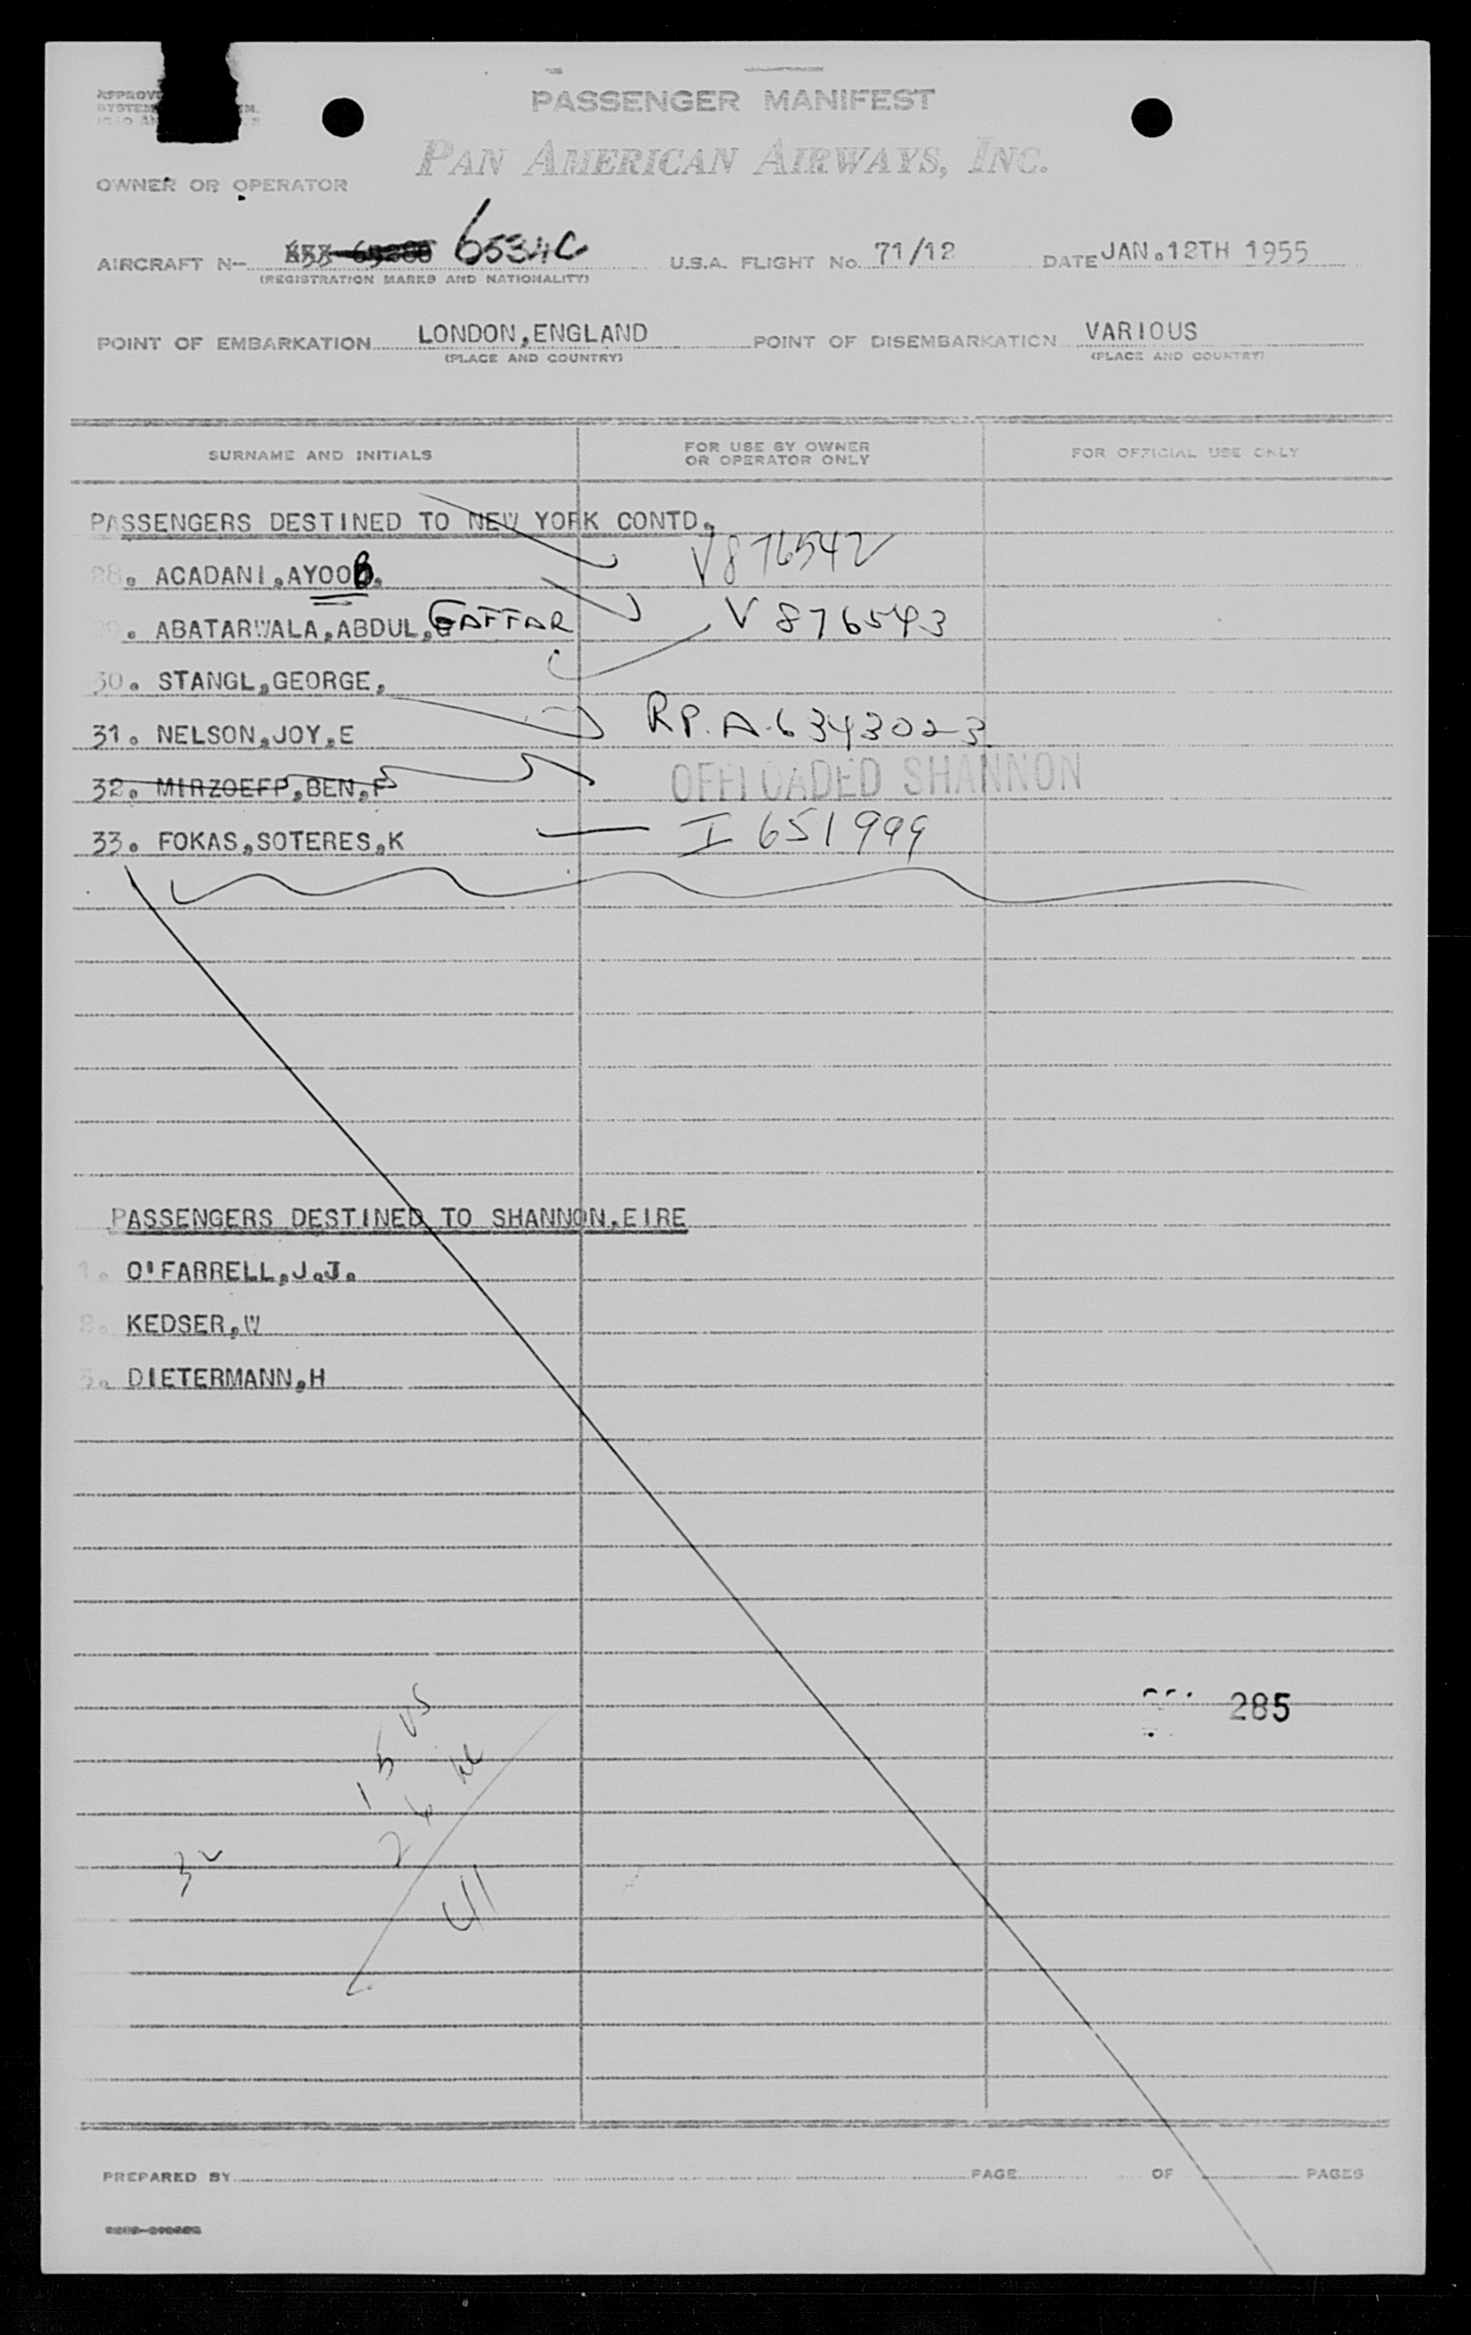 PASSENGER MANIFEST
PAN AMERICAN AIRWAYS, INC.
OWNER OR OPERATOR
AIRCRAFT N- 6534C U.S.A. FLIGHT No. 71/12 DATE JAN.12TH 1955
(REGISTRATION MARKS AND NATIONALITY)
POINT OF EMBARKATION LONDON,ENGLAND POINT OF DISEMBARKATION VARIOUS
(PLACE AND COUNTRY) (PLACE AND COUNTRY)
SURNAME AND INITIALS FOR USE BY OWNER OR OPERATOR ONLY FOR OFFICIAL USE ONLY
PASSENGERS DESTINED TO NEW YORK CONTD.
28. ACADANI,AYOOB. V876542
. ABATARWALA,ABDUL,GAFFAR V 876543
30. STANGL,GEORGE,
31. NELSON,JOY,E RP.A.6343023
32. MIRZOEFF,BEN,F OFFLOADED SHANNON
33. FOKAS,SOTERES,K I 651999
PASSENGERS DESTINED TO SHANNON,EIRE
1. O'FARRELL,J.J.
2. KEDSER,W
3. DIETERMANN,H
285
15 US
26
32
41
PREPARED BY PAGE OF PAGES